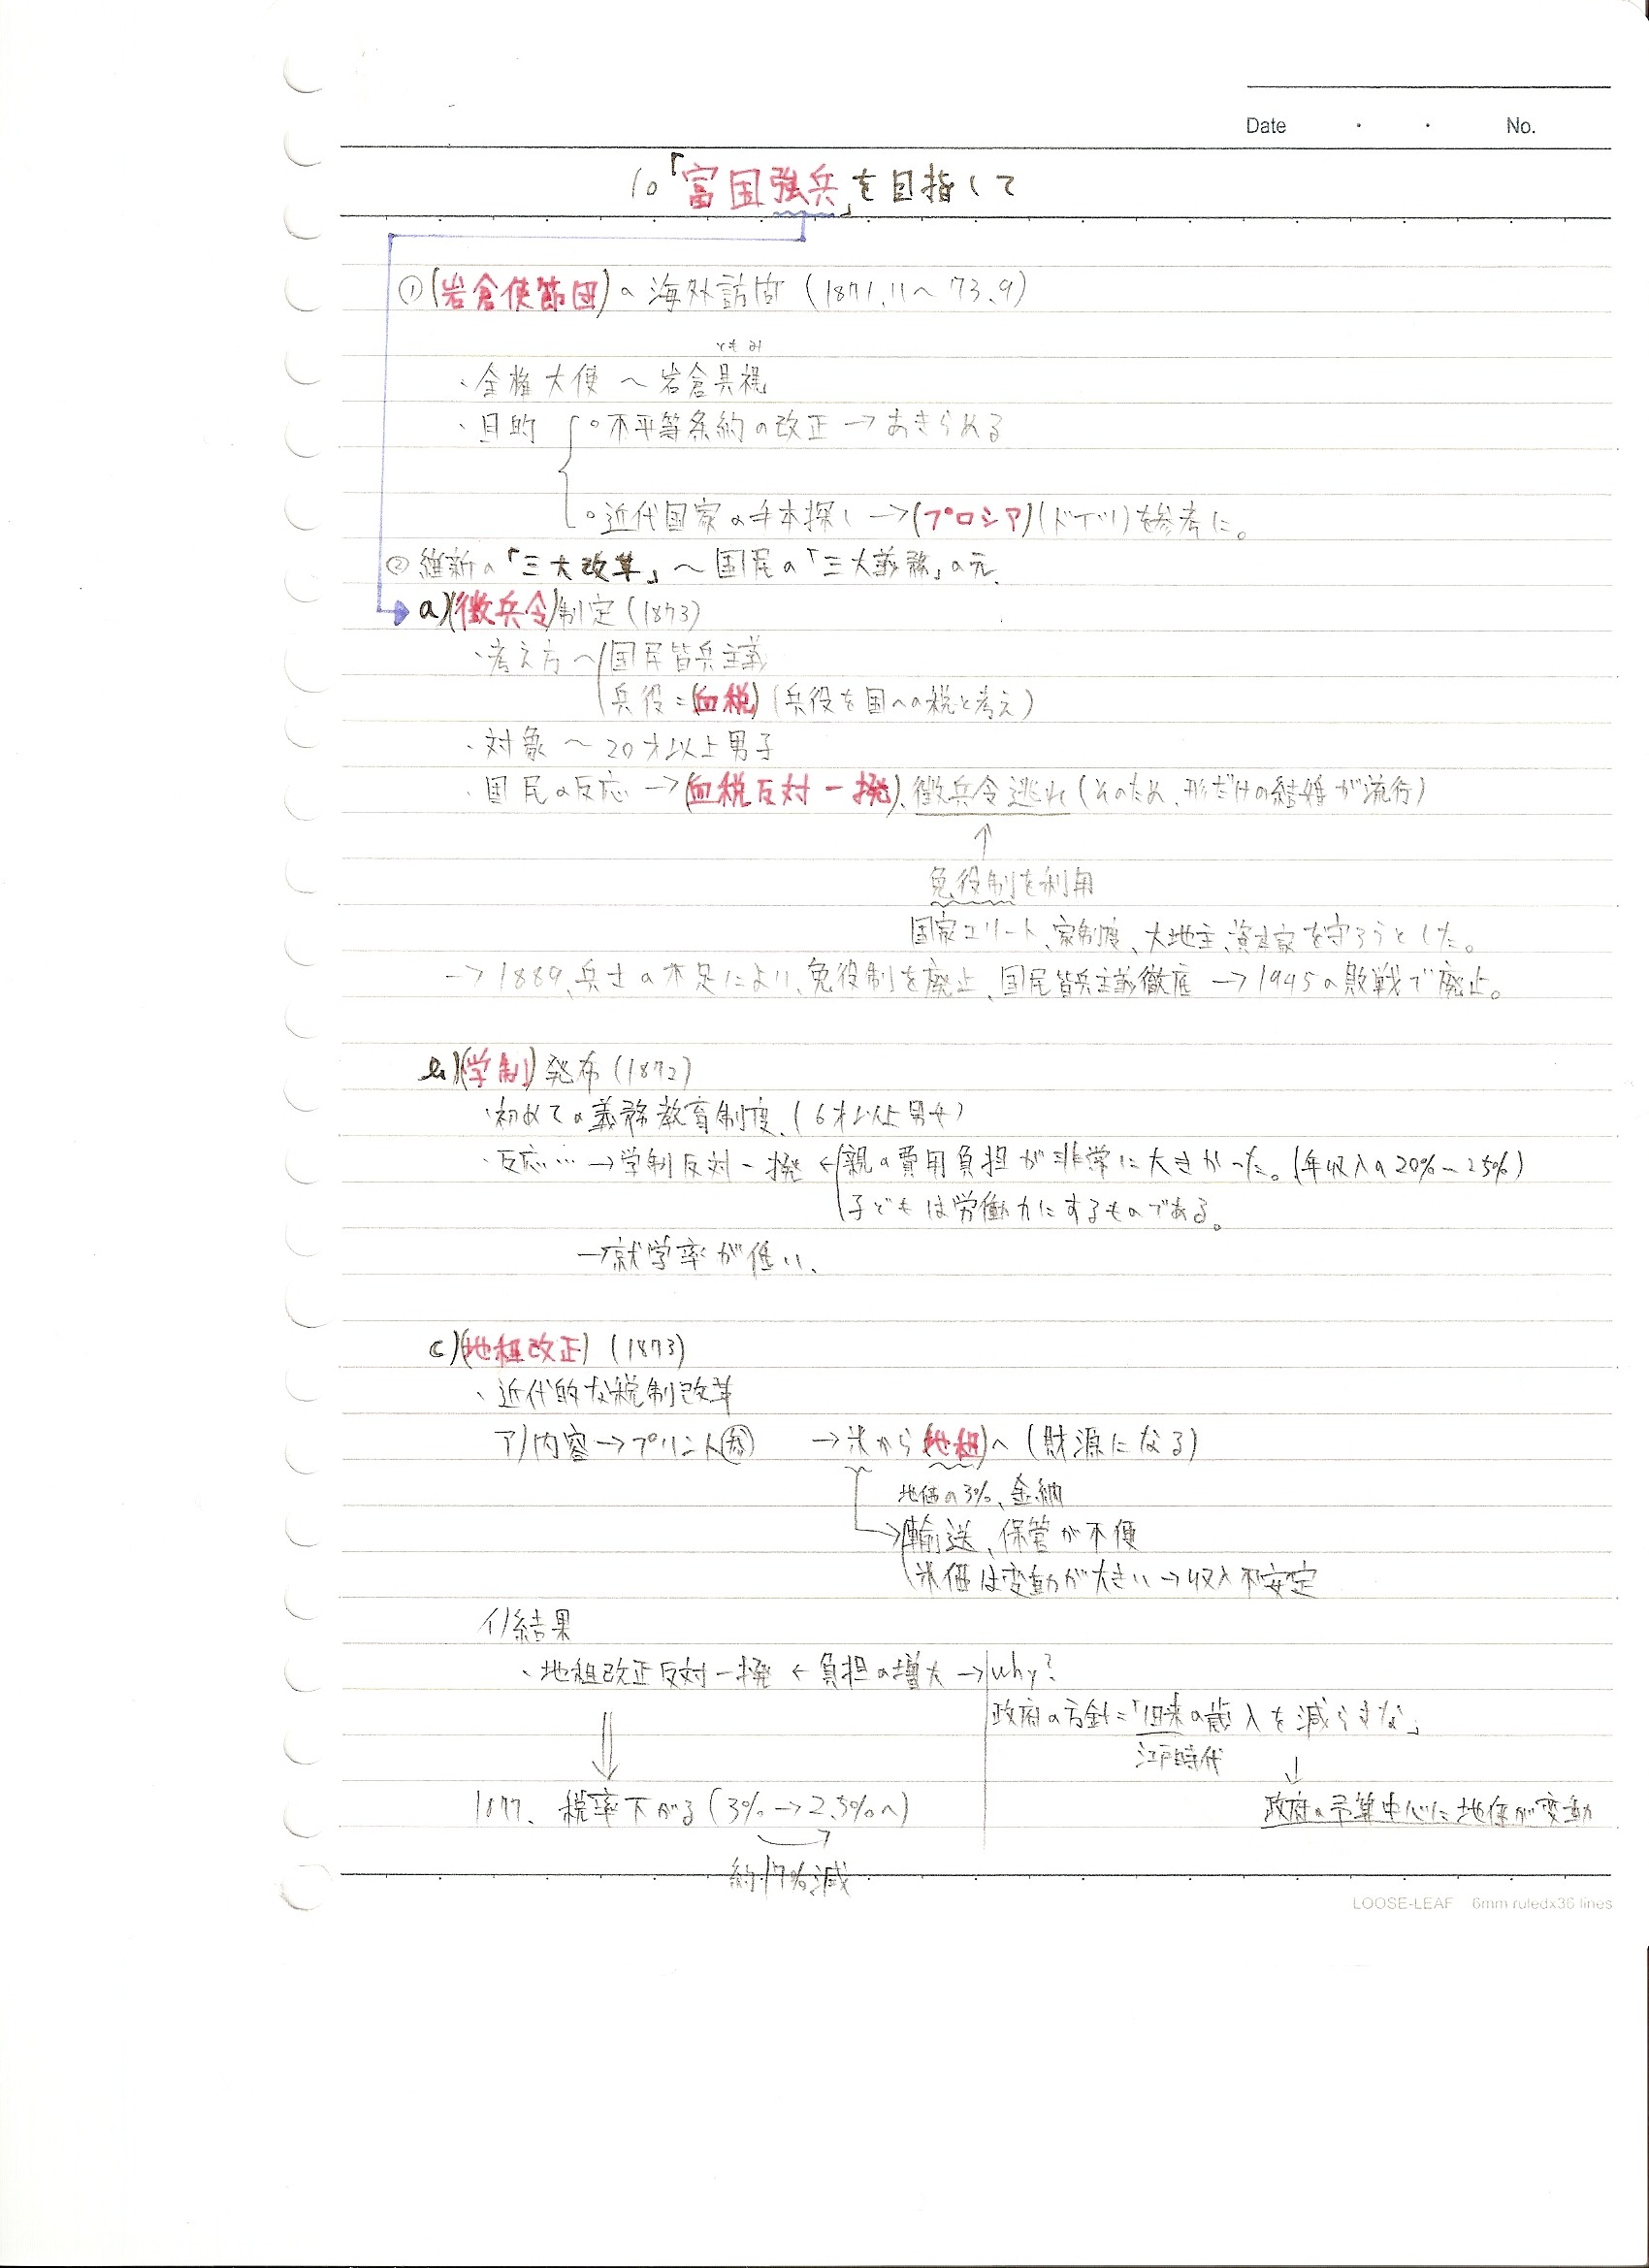 Date ・ ・ No.
10「富国強兵」を目指して
①(岩倉使節団)の海外訪問 (1871.11〜73.9)
ともみ
・全権大使 〜 岩倉具視
・目的 ○不平等条約の改正→あきらめる
○近代国家の手本探し→(プロシア)(ドイツ)を参考に。
②維新の「三大改革」〜国民の「三大義務」の元
a)(徴兵令)制定(1873)
・考え方〜国民皆兵主義
兵役=(血税)(兵役を国への税と考え)
・対象 〜 20才以上男子
・国民の反応→(血税反対一揆)、徴兵令逃れ(そのため、形だけの結婚が流行)
↑
免役制を利用
国家エリート、家制度、大地主、資本家を守ろうとした。
→1889、兵士の不足により、免役制を廃止、国民皆兵主義徹底→1945の敗戦で廃止。
b)(学制)発布(1872)
・初めての義務教育制度(6才以上男女)
・反応…→学制反対一揆←親の費用負担が非常に大きかった。(年収入の20%〜25%)
子どもは労働力にするものである。
→就学率が低い、
c)(地租改正)(1873)
・近代的な税制改革
ア)内容→プリント参 →米から(地租)へ(財源になる)
地価の3%、金納
輸送、保管が不便
米価は変動が大きい→収入不安定
イ)結果
・地租改正反対一揆←負担の増大→why?
政府の方針=「旧来の歳入を減らすな」
江戸時代
↓
1877、税率下がる(3%→2.5%へ) 政府の予算中心に地価が変動
約17%減
LOOSE-LEAF 6mm ruledx36 lines